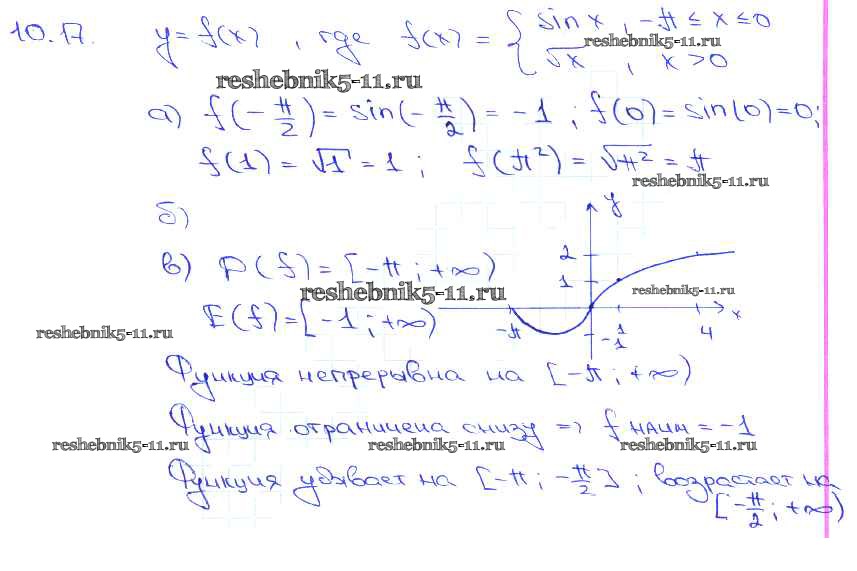 10.17. y = f(x), где f(x) = { sin x, -π ≤ x ≤ 0
√x, x > 0
reshebnik5-11.ru
reshebnik5-11.ru
а) f(-π/2) = sin(-π/2) = -1; f(0) = sin(0) = 0;
f(1) = √1 = 1; f(π²) = √π² = π
reshebnik5-11.ru
б)
y
2
1
-π 1 4 x
-1
в) D(f) = [-π; +∞)
reshebnik5-11.ru
reshebnik5-11.ru
E(f) = [-1; +∞)
reshebnik5-11.ru
Функция непрерывна на [-π; +∞)
Функция ограничена снизу => f наим = -1
reshebnik5-11.ru reshebnik5-11.ru reshebnik5-11.ru
Функция убывает на [-π; -π/2]; возрастает на
[-π/2; +∞)